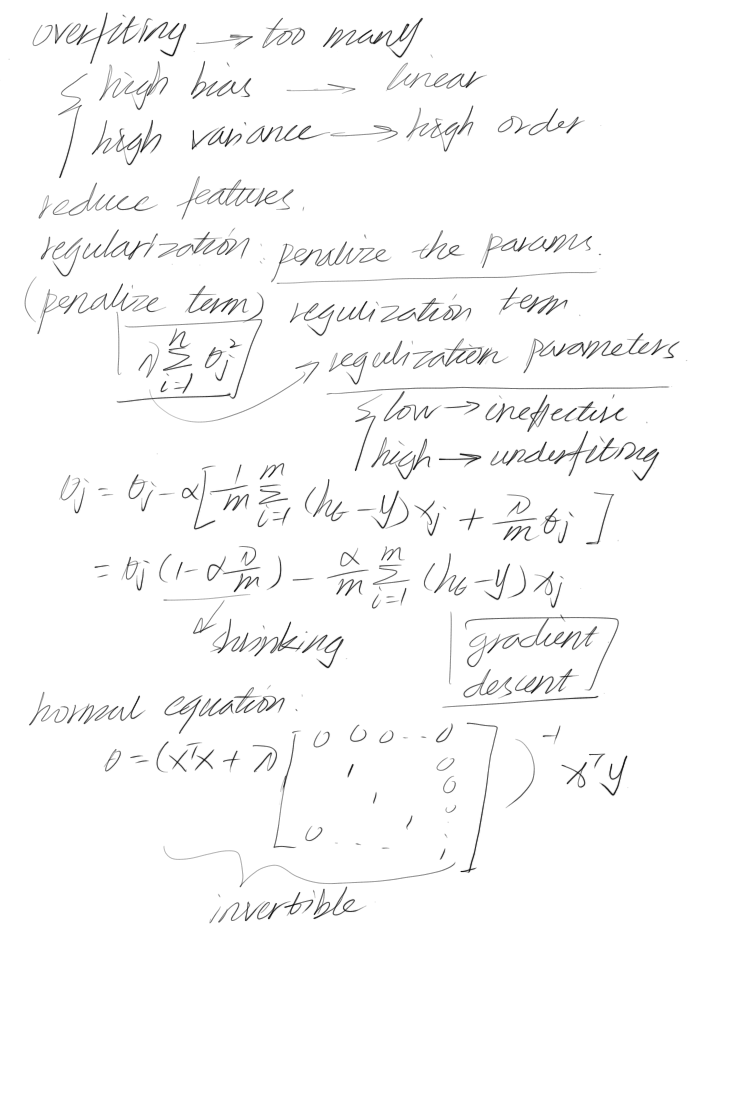 overfiting → too many
{ high bias → linear
high variance → high order
reduce features.
regularization: penalize the params.
(penalize term) regulization term
λ∑_{i=1}^{n} θj² → regulization parameters
{ low → ineffective
high → underfiting
θj = θj - α[ 1/m ∑_{i=1}^{m} (hθ - y)xj + λ/m θj ]
= θj (1 - α λ/m) - α/m ∑_{i=1}^{m} (hθ - y) xj
shrinking
gradient
descent
normal equation:
θ = (xᵀx + λ [ 0 0 0 ... 0
1 0
1 0
1 0
0 . . . . 1 ] )⁻¹ xᵀy
invertible